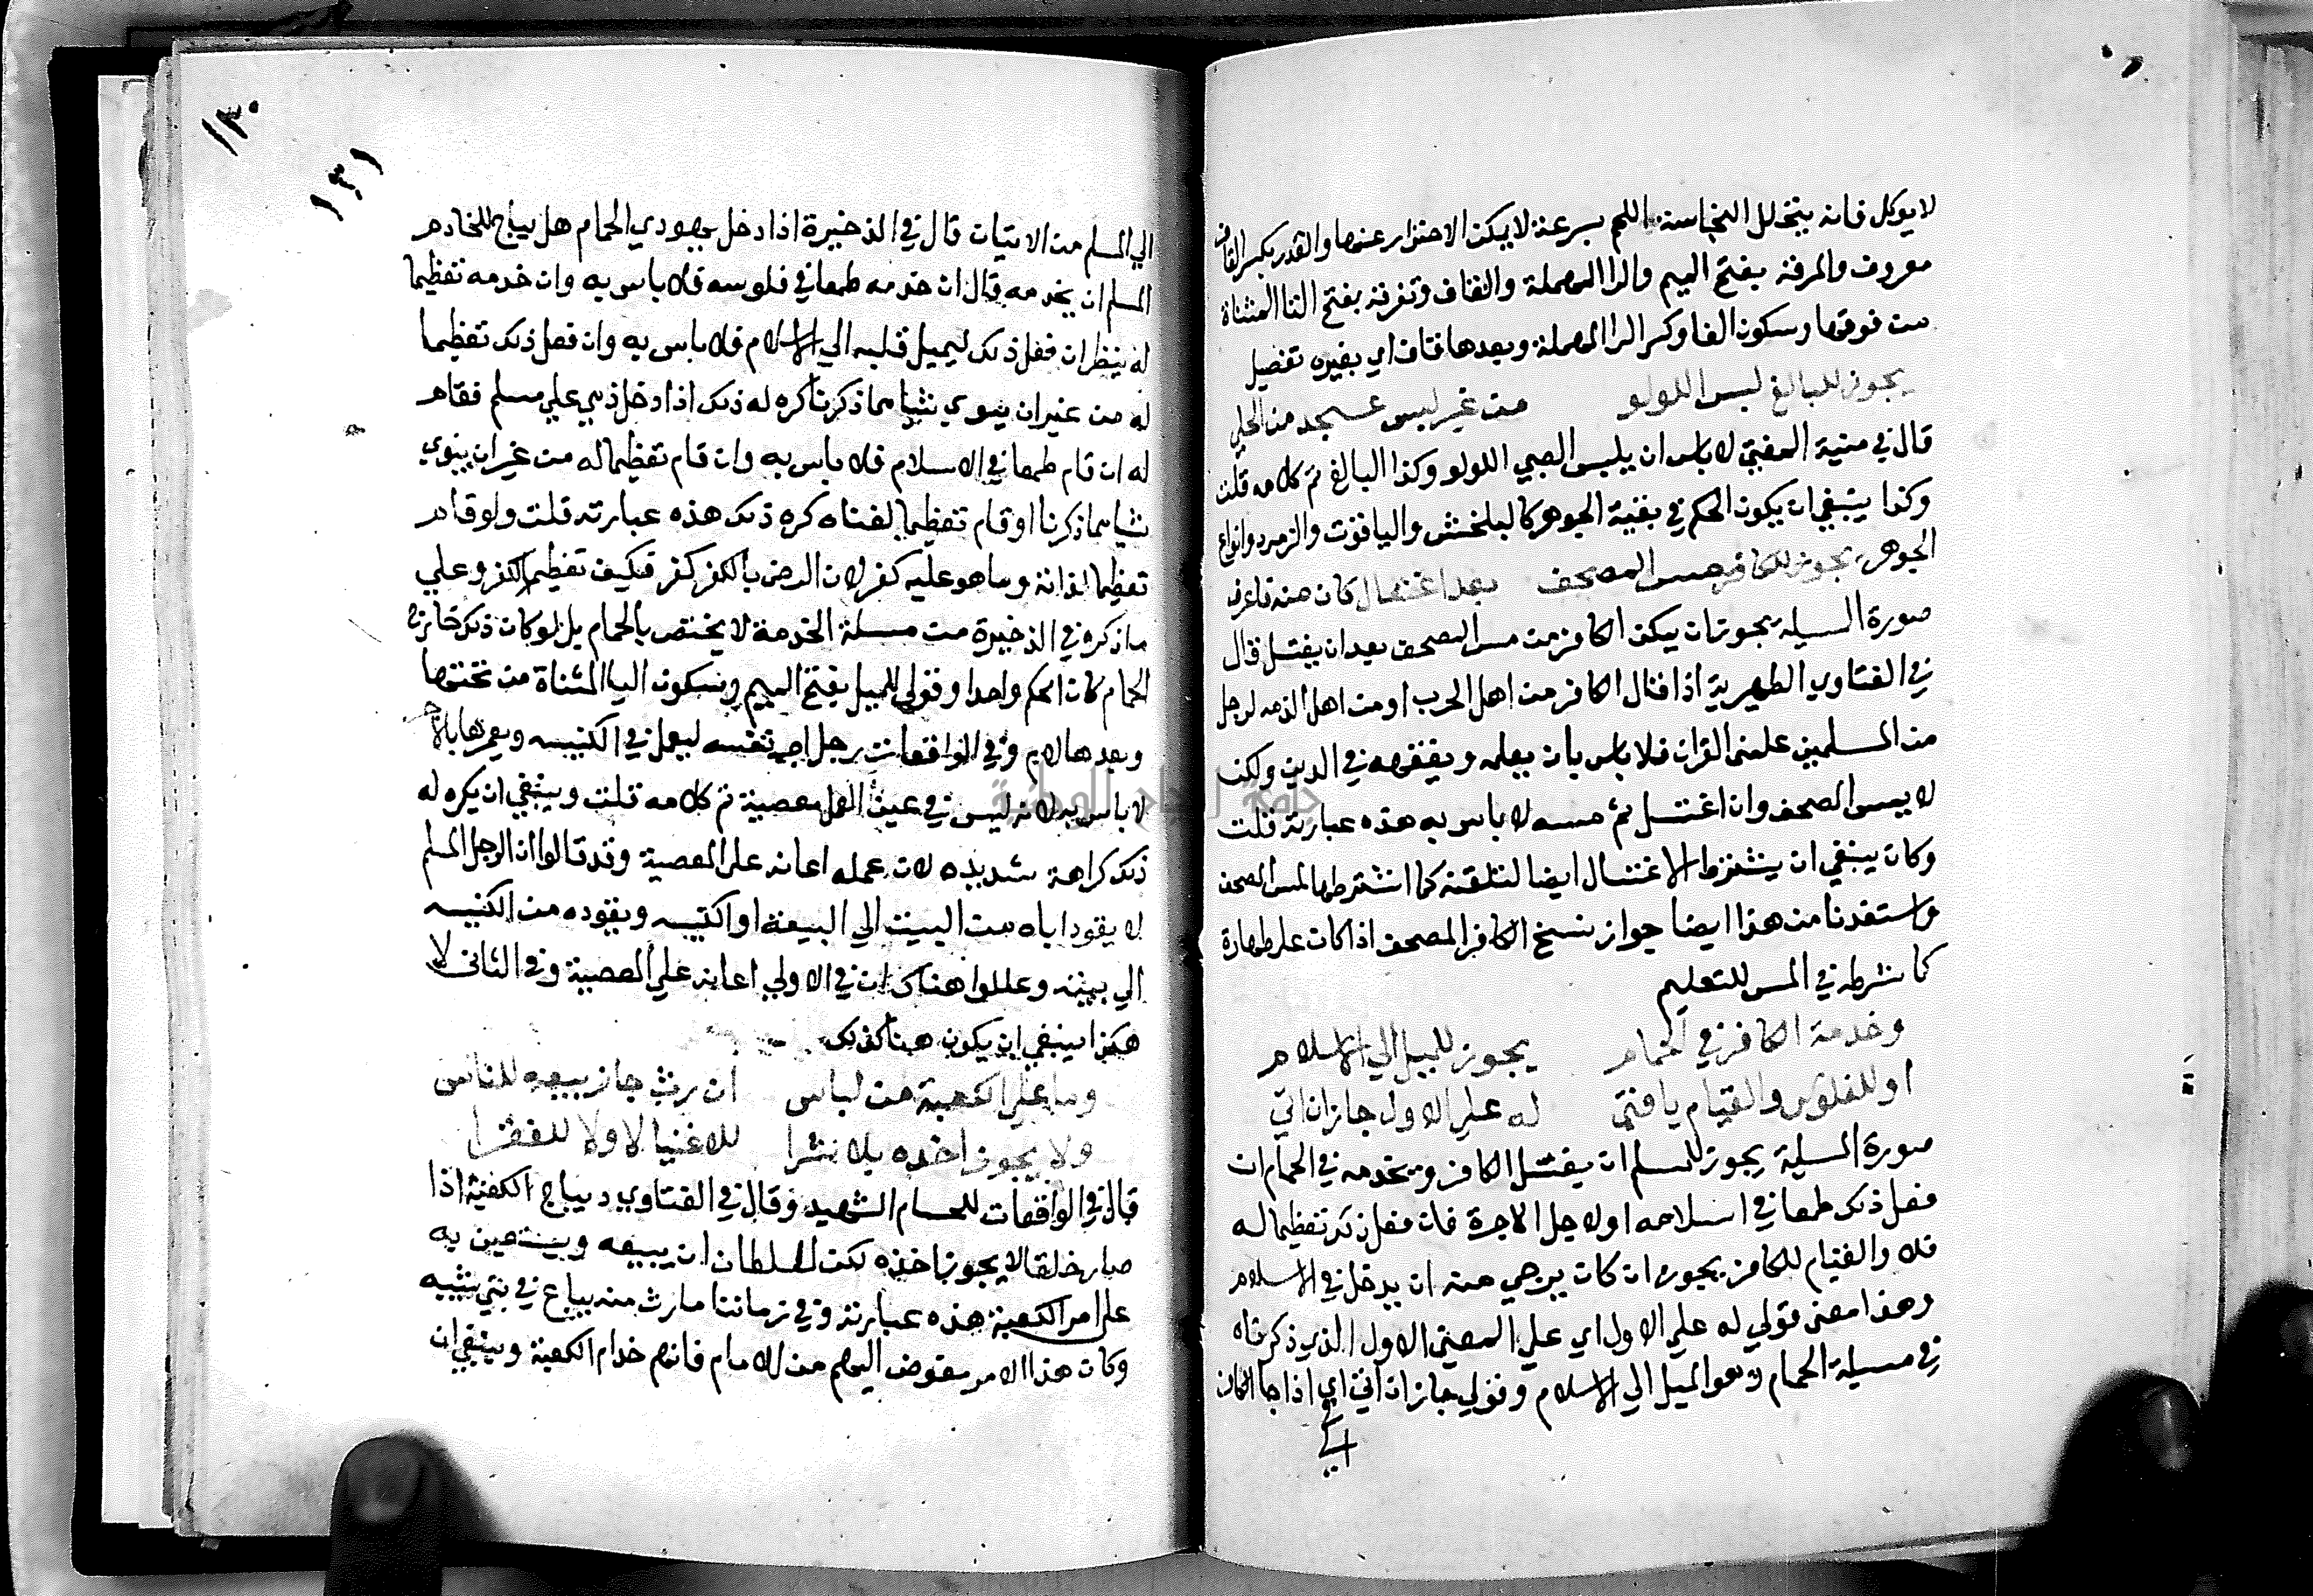 لا يوكل فانه يتخلل النجاسة اللحم بسرعة لا يمكن الاحتزار عنها والقدر بكسر القاف
معروف والمرقة بفتح الميم والرا المهملة والقاف وتفرقة بفتح التا المثناة
من فوقها وسكون الفا وكسر الرا المهملة وبعدها قاف اي بغير تفصيل
يجوز للبالغ لبس اللولو من غير لبس عسجد من الحلي
قال في منية المفتي لا باس ان يلبس الصبي اللولو وكذا البالغ تم كلامه قلت
وكذا ينبغي ان يكون الحكم في بقية الجوهر كالبلخش والياقوت والزمرد وانواع
الجوهر يجوز للكافر مس المصحف بعد اغتسال كان منه فاعرف
صورة المسيله يجوز ان يمكن الكافر من مس المصحف بعد ان يغتسل قال
في الفتاوي الظهيرية اذا قال الكافر من اهل الحرب او من اهل الذمه لرجل
من المسلمين علمني القران فلا باس بان يعلمه ويفقهه في الدين ولكن
لا يمس المصحف وان اغتسل ثم مسه لا باس به هذه عبارته قلت
وكان ينبغي ان يشترط الاغتسال ايضا لتلقنه كما اشترطها لمس المصحف
واستفدنا من هذا ايضا جواز نسخ الكافر المصحف اذا كان علي طهارة
كما شرطه في المس للتعليم
وخدمة الكافر في الحمام يجوز للميل الي الاسلام
او للفلوس والقيام يا فتي له علي الاول جاز ان اتي
صورة المسيلة يجوز للمسلم ان يغسل الكافر وتخدمه في الحمام ان
فعل ذلك طمعا في اسلامه او لاجل الاجرة فان فعل ذلك تعظيما له
فلا والقيام للكافر يجوز ان كان يرجي منه ان يدخل في الاسلام
وهذا معنى قولي له علي الاول اي علي المعني الاول الذي ذكرناه
في مسيلة الحمام وهو الميل الي الاسلام وقولي جاز ان اتي اي اذا جا الكافر
الي
١٣٠
١٣١
الي المسلم من الاتيان قال في الذخيرة اذا دخل يهودي الحمام هل يباح للخادم
المسلم ان يخدمه قال ان خدمه طمعا في فلوسه فلا باس به وان خدمه تعظيما
له ينظر ان فعل ذلك ليميل قلبه الي الاسلام فلا باس به وان فعل ذلك تعظيما
له من غير ان ينوي شيا مما ذكرنا كره له ذلك اذا دخل ذمي علي مسلم فقام
له ان قام طمعا في الاسلام فلا باس به وان قام تعظيما له من غير ان ينوي
شيا مما ذكرنا او قام تعظيما لغناه كره ذلك هذه عبارته قلت ولو قام
تعظيما لذاته وما هو عليه كفر لان الرضي بالكفر كفر فكيف تعظيم الكفر وعلي
ما ذكره في الذخيرة من مسلة الخدمة لا يختص بالحمام بل لو كان ذلك خارج
الحمام كان الحكم واحدا وقولي للميل بفتح الميم وسكون اليا المثناة من تحتها
وبعدها لام وفي الواقعات رجل اجر نفسه ليعمل في الكنيسه ويعمرها بالاجر
لا باس به لانه ليس في عين العمل معصية تم كلامه قلت وينبغي ان يكره له
ذلك كراهة شديده لان عمله اعانه على المعصية وقد قالوا ان الرجل المسلم
لا يقود اباه من البيت الي البيعة او الكنيسه ويقوده من الكنيسه
الي بيته وعللوا هناك ان في الاولي اعانه علي المعصية وفي الثاني لا
هكذا ينبغي ان يكون هنا كذلك
وما على الكعبة من لباس ان رث جاز بيعه للناس
ولا يجوز اخذه بلا شرا للاغنيا لا ولا للفقرا
قال في الواقعات للحسام الشهيد وقال في الفتاوي ديباج الكعبة اذا
صار خلقا لا يجوز اخذه لكن السلطان ان يبيعه ويستعين به
على امر الكعبة هذه عبارته وفي زماننا ما رث منه يباع في بني شيبه
وكان هذا الامر مفوض اليهم من الامام فانهم خدام الكعبة وينبغي ان